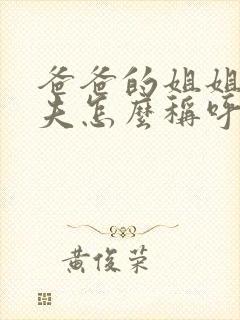 爸爸的姐姐
夫怎麼稱呼
黃俊荣